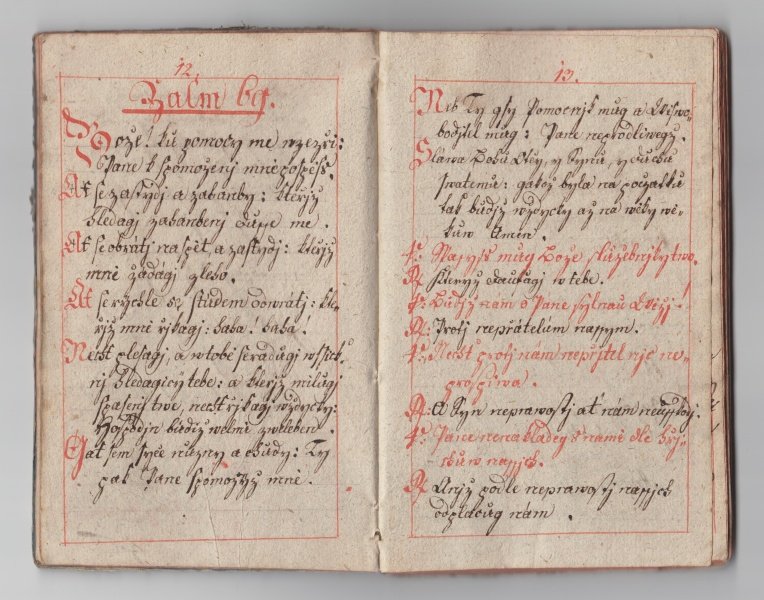 12.
Zalm 69.
Bože! ku pomocy me wzezři:
Pane k spomoženj mně pospěss.
At se zastydj a zahanby: kteřjz
hledagj zahanbenj dusse me.
At se obratj na spět, a zastydj: kteřjz
mně žádagj zleho.
At se rychle se studem dowrátj: kte-
řjz mně řjkagj: haha. haha!
Necht plesagj, a w tobě se radugj wssick-
nj hledagjcý tebe: a kteřjz milugj
spasenj twe, necht řjkagj wzdycky:
Hospodjn budiz welmi zweleben.
Gat sem syce nuzny a chudy: Ty
pak Pane spomozyz mně.
13.
Neb Ty gsy Pomocnjk mug a Wyswo-
boditel mug: Pane neprodlewegz.
Slawa Bohu Otcy, y Synu, y Duchu
swatemu: gakoz byla na pocžatku
tak budiz wzdycky až na wěky wě-
kuw Amen.
℣: Spas Bože služebnjky twe.
℟: Kteryz daufagj w tebe.
℣: Budiz nám o Pane sylnau Wěžj!
℟: Protj nepřátelům nassym.
℣: Necht protj nám nepřjtel njc ne-
prospiwa.
℟: A Syn neprawostj at nám nesskodj.
℣: Pane nenakladey s namj dle hřj-
chuw nassjch.
℟: Anjz podle neprawostj nassjch
odplacug nám.